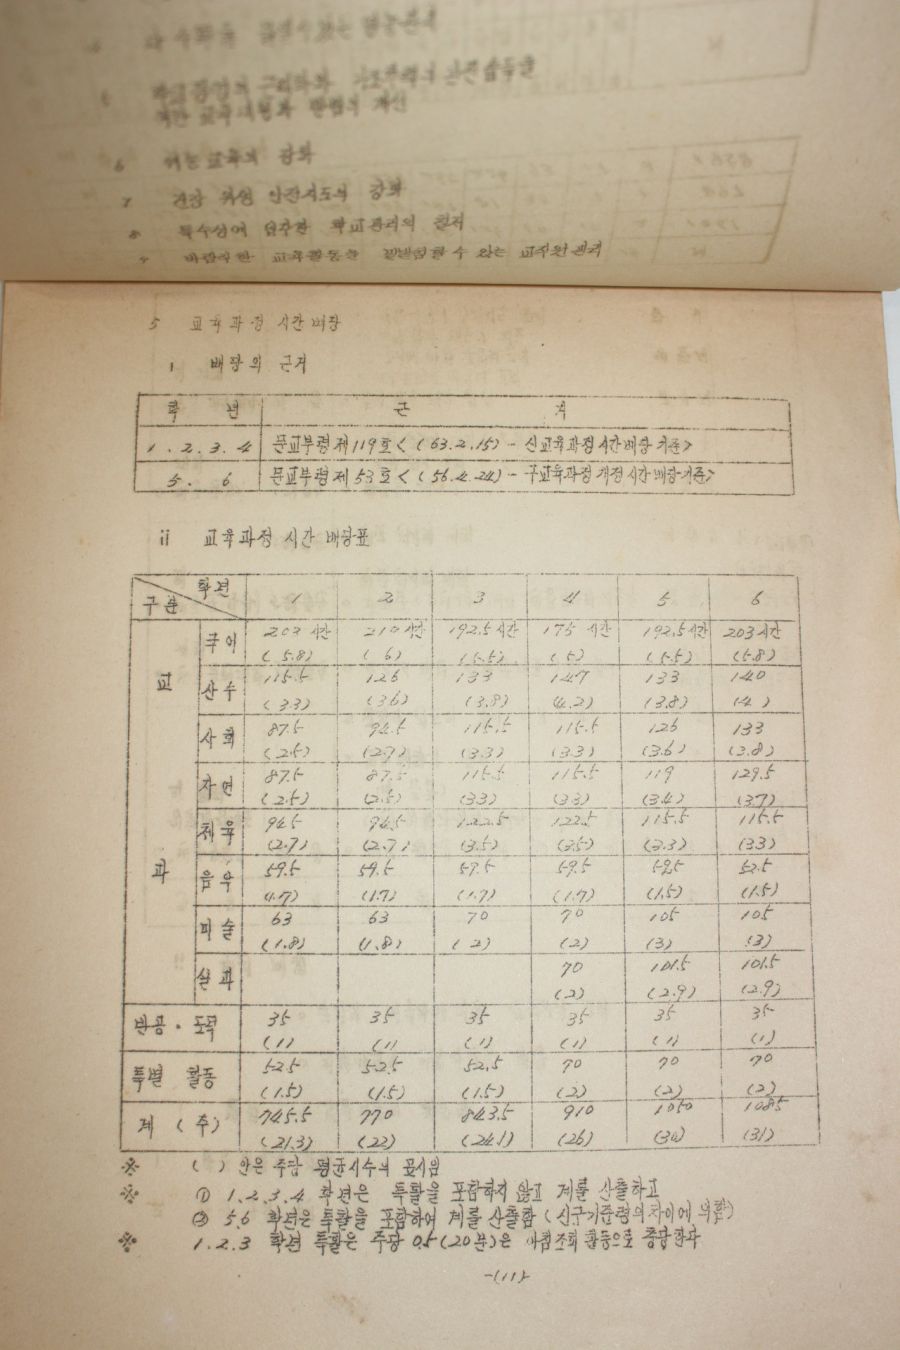 6 의 강화
7 건강 위생 안전지도의 강화
8 특수성에 입각한 학교관리의 합리
9 바람직한 교육활동을 할 수 있는 교직원 관리
5 교육과정 시간배당
i 배당의 근거
학 년 근 거
1. 2. 3. 4 문교부령 제119호 < (63.2.15) - 신교육과정시간배당 기준>
5. 6 문교부령 제53호 < (56.4.24) - 구교육과정 개정 시간배당기준>
ii 교육과정 시간 배당표
학년 1 2 3 4 5 6
구분
국어 203시간 210시간 192.5시간 175시간 192.5시간 203시간
(5.8) (6) (5.5) (5) (5.5) (5.8)
교 산수 115.5 126 133 147 133 140
(3.3) (3.6) (3.8) (4.2) (3.8) (4)
사회 87.5 94.5 115.5 115.5 126 133
(2.5) (2.7) (3.3) (3.3) (3.6) (3.8)
자연 87.5 87.5 115.5 115.5 119 129.5
(2.5) (2.5) (33) (33) (3.4) (3.7)
체육 94.5 94.5 122.5 122.5 115.5 115.5
(2.7) (2.7) (3.5) (3.5) (3.3) (33)
과 음악 59.5 59.5 59.5 59.5 52.5 52.5
(1.7) (1.7) (1.7) (1.7) (1.5) (1.5)
미술 63 63 70 70 105 105
(1.8) (1.8) (2) (2) (3) (3)
실과 70 101.5 101.5
(2) (2.9) (2.9)
반공 · 도덕 35 35 35 35 35 35
(1) (1) (1) (1) (1) (1)
특별 활동 52.5 52.5 52.5 70 70 70
(1.5) (1.5) (1.5) (2) (2) (2)
계 (주) 745.5 770 843.5 910 1050 1085
(21.3) (22) (24.1) (26) (30) (31)
※ ( ) 안은 주당 평균시수의 표시임
※ ① 1.2.3.4 학년은 특활을 포함하지 않고 계를 산출하고
② 5.6 학년은 특활을 포함하여 계를 산출함 (신구기준령의 차이에 의함)
※ 1.2.3 학년 특활은 주당 0.5(20분)은 아침조회 활동으로 충당한다
-(11)-